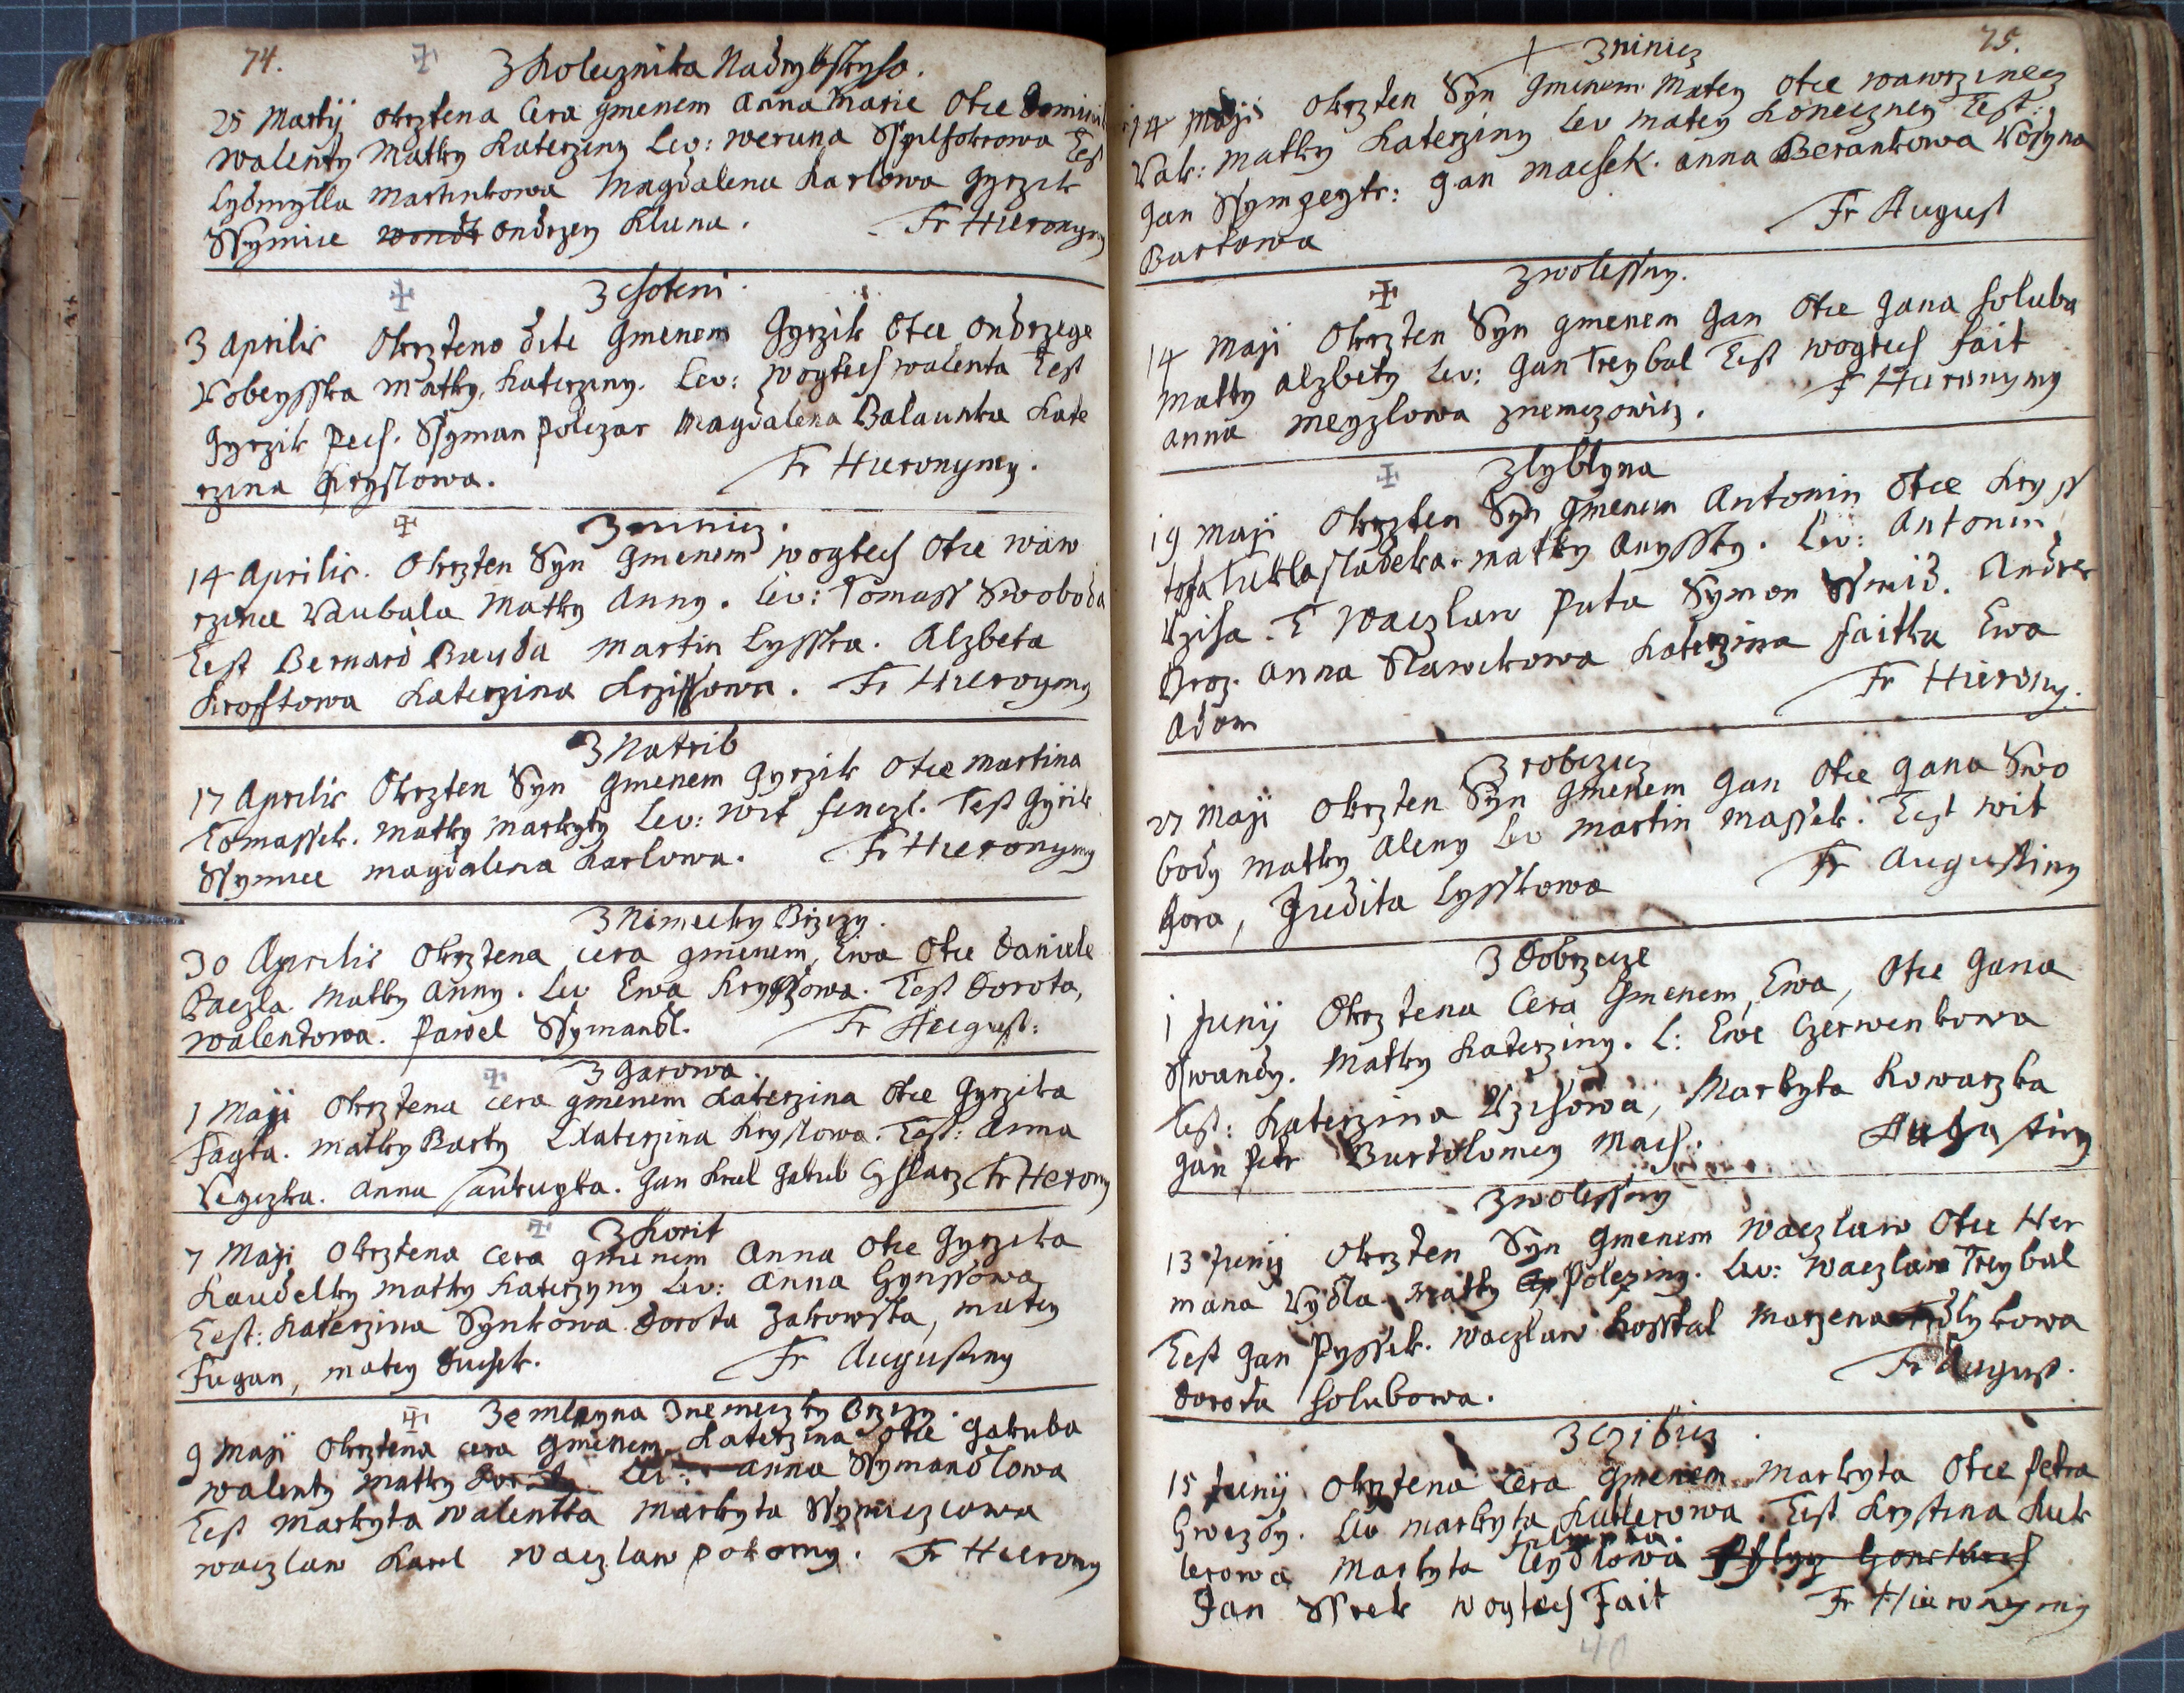 74.
Z Koleznika Nadrybskyho.
25 Martij okrztena Cera gmenem Anna Marie Otce
Walenty Matky Katerziny Lev: Weruna Test
Lydmylla Martinkowa Magdalena Karlowa Gyrzik
Ssymice Ondrzey Kluna. Fr Hieronymy
Z Choteni.
3 Aprilis Okrzteno dite Gmenem Gyrzik Otce Ondrzege
Kobeysska Matky Katerziny. Lev: Wogtech Walenta Test
Gyrzik Pech. Ssyman Polczar Magdalena Balaunka Kate
rzina Krystowa. Fr Hieronymy.
Z ninicz.
14 Aprilis. Okrzten Syn Gmenem Wogtech Otce Waw
rzince Kaubala Matky Anny. Lev: Tomass Swoboda
Test Bernard Bauda Martin Lysska. Alzbeta
Kroftowa Katerzina Krzissowa. Fr Hieroymy
Z Natrib
17 Aprilis Okrzten Syn Gmenem Gyrzik Otce Martina
Tomassek. Matky Markyty Lev: Wit fenczl. Test Gyrik
Ssymice Magdalena Karlowa. Fr Hieronymy
Z Nimecky Brizy.
30 Aprilis Okrztena cera gmenem, Ewa Otce Daniele
Paczla Matky Anny. Lev Ewa Test Dorota,
Walentowa. Pawel Ssymandl. Fr August:
Z Garowa.
1 Maji Okrztena cera gmenem Katerzina Otce Gyrzika
Fagta. Matky Barty L Katerzina Krystowa. Test: Anna
Anna Gan Kral Gakub Fr Herony
Z Korit
7 Maji Okrztena cera gmenem Anna Otce Gyrzika
Kaudelky Matky Katerzyny Lev: Anna Gynssowa
Test: Katerzina Synkowa Dorota Zakowska, Matey
Fugan, Matey Duchek. Fr Augustiny
Ze mleyna Z nemeczky Brzizy.
9 Maji Okrztena cera Gmenem Katerzina Otce Gakuba
Walenty Matky Lev: Anna Ssymandlowa
Test Markyta Walentka Markyta Ssymiczowa
Waczlaw Karel Waczlaw Pokorny. Fr Hierony
75.
Z ninicz
14 Maji Okrzten Syn Gmenem Matey Otce Wawrzincz
Kak: Matky Katerziny Lev Matey Koneczney Test:
Gan Ssympeytr: Gan Machek. Anna Berankowa
Bartowa Fr August
Z Wolessny.
14 Maji Okrzten Syn gmenem Gan Otce Gana Holuba
Matky Alzbety Lev: Gan Treybal Test Wogtech Fait
Anna Meyzlowa z nemczowicz. F Hieronymy
Z lyblyna
19 Maji Okrzten Syn Gmenem Antonin Otce Kryss
tofa Tukla sladeka. Matky Anyssky. Lev: Antonin
T Waczlaw Puta Symon Ssmid. Andres
Broz. Anna Slawikowa Katerzina Faitka Ewa
Adam Fr Hierony.
Z robczicz
27 Maji Okrzten Syn Gmenem Gan Otce Gana Swo
body Matky Aleny Lev Martin Massek. Test Wit
Hora, Judita Lysskowa Fr Augustiny
Z Dobrzcze
1 Junij Okrztena Cera Gmenem, Ewa, Otce Gana
Sswandy. Matky Katerziny. L: Ewe Czerwenkowa
Test: Katerzina Markyta Kowarzka
Gan Petr Bartolomey Mach. Augustiny
Z Wolessny
13 Junij Okrzten Syn Gmenem Waczlaw Otce Her
mana Kydla Matky Polexiny. Lev: Waczlaw Treybal
Test Gan Pyssek. Waczlaw Kosstal Marzena
Dorota Holubowa. Fr August.
Z Czibicz
15 Junij Okrztena Cera Gmenem Markyta Otce Petra
Gwezdy. Lev Markyta Kutlerowa. Test Krystina Kut
lerowa Markyta
Jan Ssrek Wogtech Fait Fr Hieronymy
40